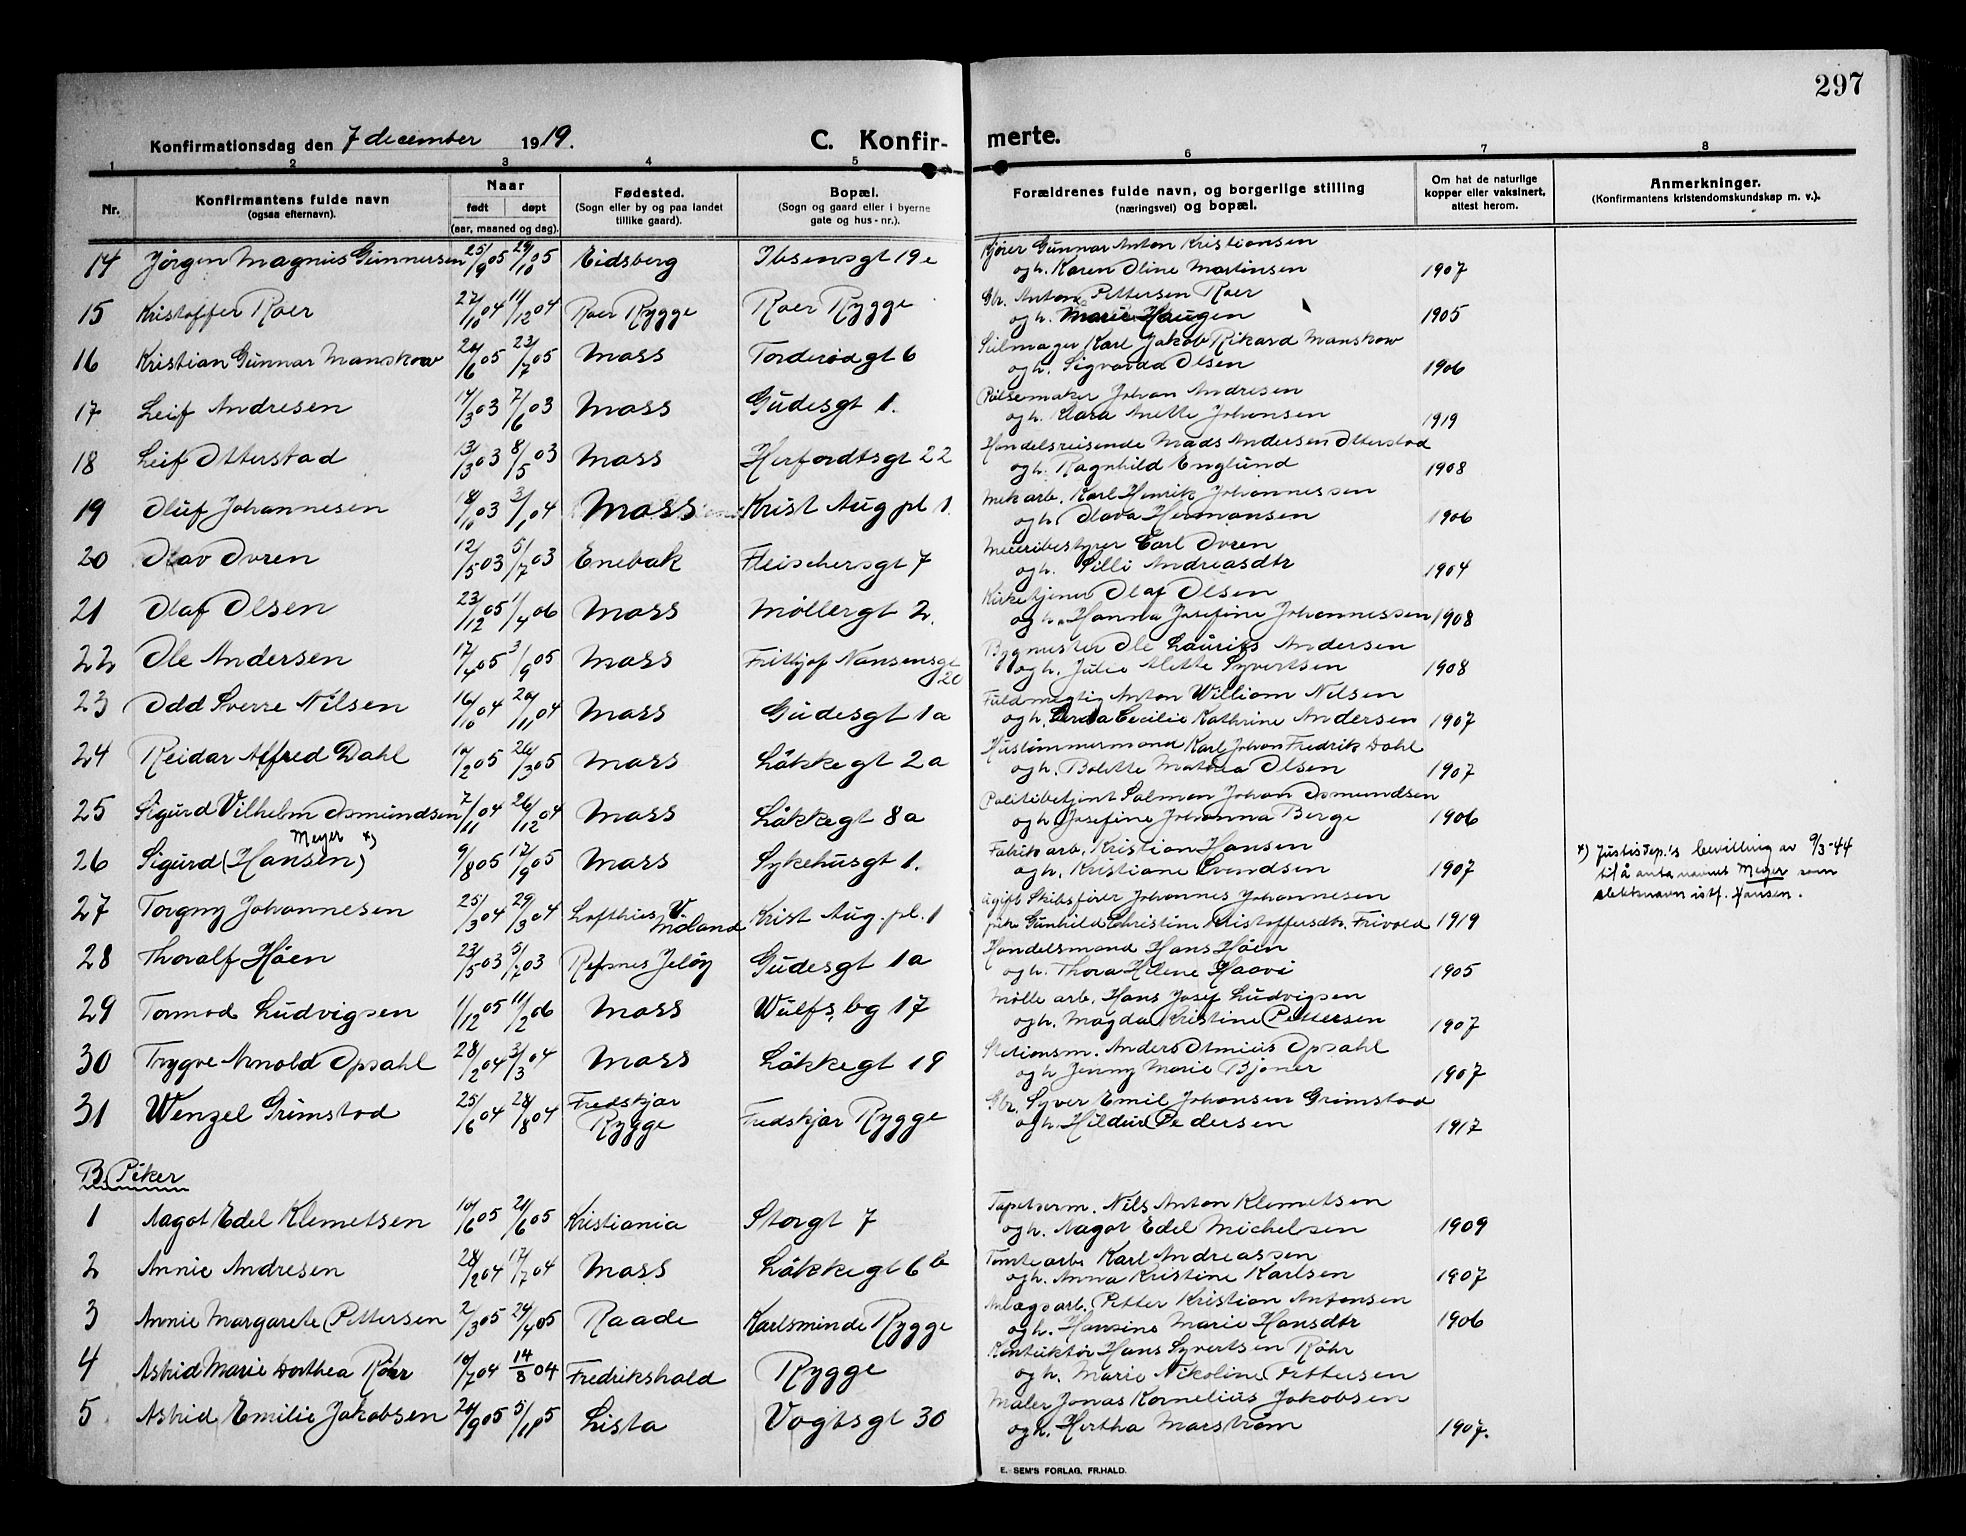 297
Konfirmationsdag den 7 december 1919. C. Konfirmerte.
1 2 3 4 5 6 7 8
Nr. Konfirmantens fulde navn (ogsaa efternavn). Naar født døpt (aar, maaned og dag). Fødested. (Sogn eller by og paa landet tillike gaard). Bopæl. (Sogn og gaard eller i byerne gate og hus-nr.). Forældrenes fulde navn, og borgerlige stilling (næringsvei) og bopæl. Om hat de naturlige kopper eller vaksinert, attest herom. Anmerkninger. (Konfirmantens kristendomskundskap m. v.).
14 Jørgen Magnus Gunnersen 25/9 05 29/10 05 Eidsberg Ibsensgt 19c Kjører Gunnar Anton Kristiansen
og h. Karen Oline Martinsen 1907
15 Kristoffer Roer 27/10 04 11/12 04 Roer Rygge Roer Rygge Gbr. Anton Pettersen Roer
og h. Marie Haugen 1905
16 Kristian Gunnar Manskow 26/6 05 23/7 05 Moss Torderødgt 6 Seilmager Karl Jakob Rikard Manskow
og h. Sigvarda Olsen 1906
17 Leif Andresen 14/3 03 7/6 03 Moss Gudesgt 1. Pølsemaker Johan Andresen
og h. Klara Anette Johansen 1919
18 Leif Otterstad 13/3 03 8/5 03 Moss Herfordtsgt 22 Handelsreisende Mads Andersen Otterstad
og h. Ragnhild Englund 1908
19 Oluf Johannesen 18/10 03 3/1 04 Moss Krist Aug pl 1. Mek arb. Karl Henrik Johannessen
og h. Olava Hermansen 1906
20 Olav Ovren 12/5 03 5/7 03 Enebak Fleischersgt 7 Meieribestyrer Carl Ovren
og h. Pilli Andreasdtr 1904
21 Olaf Olsen 23/12 05 1/4 06 Moss Møllergt 2. Kirketjener Olaf Olsen
og h. Hanna Josefine Johannessen 1908
22 Ole Andersen 17/4 05 3/9 05 Moss Fritjof Nansensgt 20 Bygmester Ole Laurits Andersen
og h. Julie Alette Syvertsen 1908
23 Odd Sverre Nilsen 16/10 04 20/11 04 Moss Gudesgt 1a Fuldmegtig Anton William Nilsen
og h. Cecilie Kathrine Andersen 1907
24 Reidar Alfred Dahl 10/2 05 26/3 05 Moss Løkkegt 2a Hustømmermand Karl Johan Fredrik Dahl
og h. Bolette Mathea Olsen 1907
25 Sigurd Vilhelm Osmundsen 7/11 04 26/12 04 Moss Løkkegt 8a Politibetjent Salmon Johan Osmundsen
og h. Josefine Johanna Berge 1906
Meyer x)
26 Sigurd (Hansen) 9/8 05 17/9 05 Moss Sykehusgt 1. Fabrik arb. Kristian Hansen
og h. Kristiane Svendsen 1907
x) Justisdep.'s bevilling av 9/3-44
til å anta navnet Meyer som
slektsnavn istf. Hansen.
27 Torgny Johannesen 25/3 04 29/3 04 Lofthus V. Moland Krist Aug. pl. 1 ugift Skibsfører Johannes Johannesen
pike Gunhild Christine Kristoffersdtr. Frivold 1919
28 Thoralf Høen 23/5 03 5/7 03 Refsnes Jeløy Gudesgt 1a Handelsmand Hans Høen
og h. Thora Helene Haavi 1905
29 Tormod Ludvigsen 1/12 05 11/2 06 Moss Wulfs. bg 17 Mølle arb. Hans Josef Ludvigsen
og h. Magda Kristine Pettersen 1907
30 Trygve Arnold Opsahl 28/2 04 3/3 04 Moss Løkkegt 19 Stationsm. Anders Opsahl
og h. Jenny Marie Bjøner 1907
31 Wenzel Grimstad 25/6 04 28/8 04 Fredskjær Rygge Fredskjær Rygge Gbr. Syver Emil Johansen Grimstad
og h. Hildur Pedersen 1917
B. Piker
1 Aagot Edel Klemetsen 10/6 05 21/6 05 Kristiania Storgt 7 Tapetserm. Nils Anton Klemetsen
og h. Aagot Edel Michelsen 1909
2 Annie Andresen 28/2 04 17/7 04 Moss Løkkegt 6b Tomtearb. Karl Andreassen
og h. Anna Kristine Karlsen 1907
3 Annie Margarete Pettersen 2/3 05 24/4 05 Raade Karlsminde Rygge Anlægsarb. Petter Kristian Antonsen
og h. Hansine Marie Hansdtr 1906
4 Astrid Marie Dorthea Röhr 10/7 04 14/8 04 Fredrikshald Rygge Konduktør Hans Syvertsen Röhr
og h. Marie Nikoline Pettersen
5 Astrid Emilie Jakobsen 24/9 05 5/11 05 Lista Vogtsgt 30 Maler Jonas Kornelius Jakobsen
og h. Hertha Marstrøm 1907.
E. SEM'S FORLAG, FR.HALD.